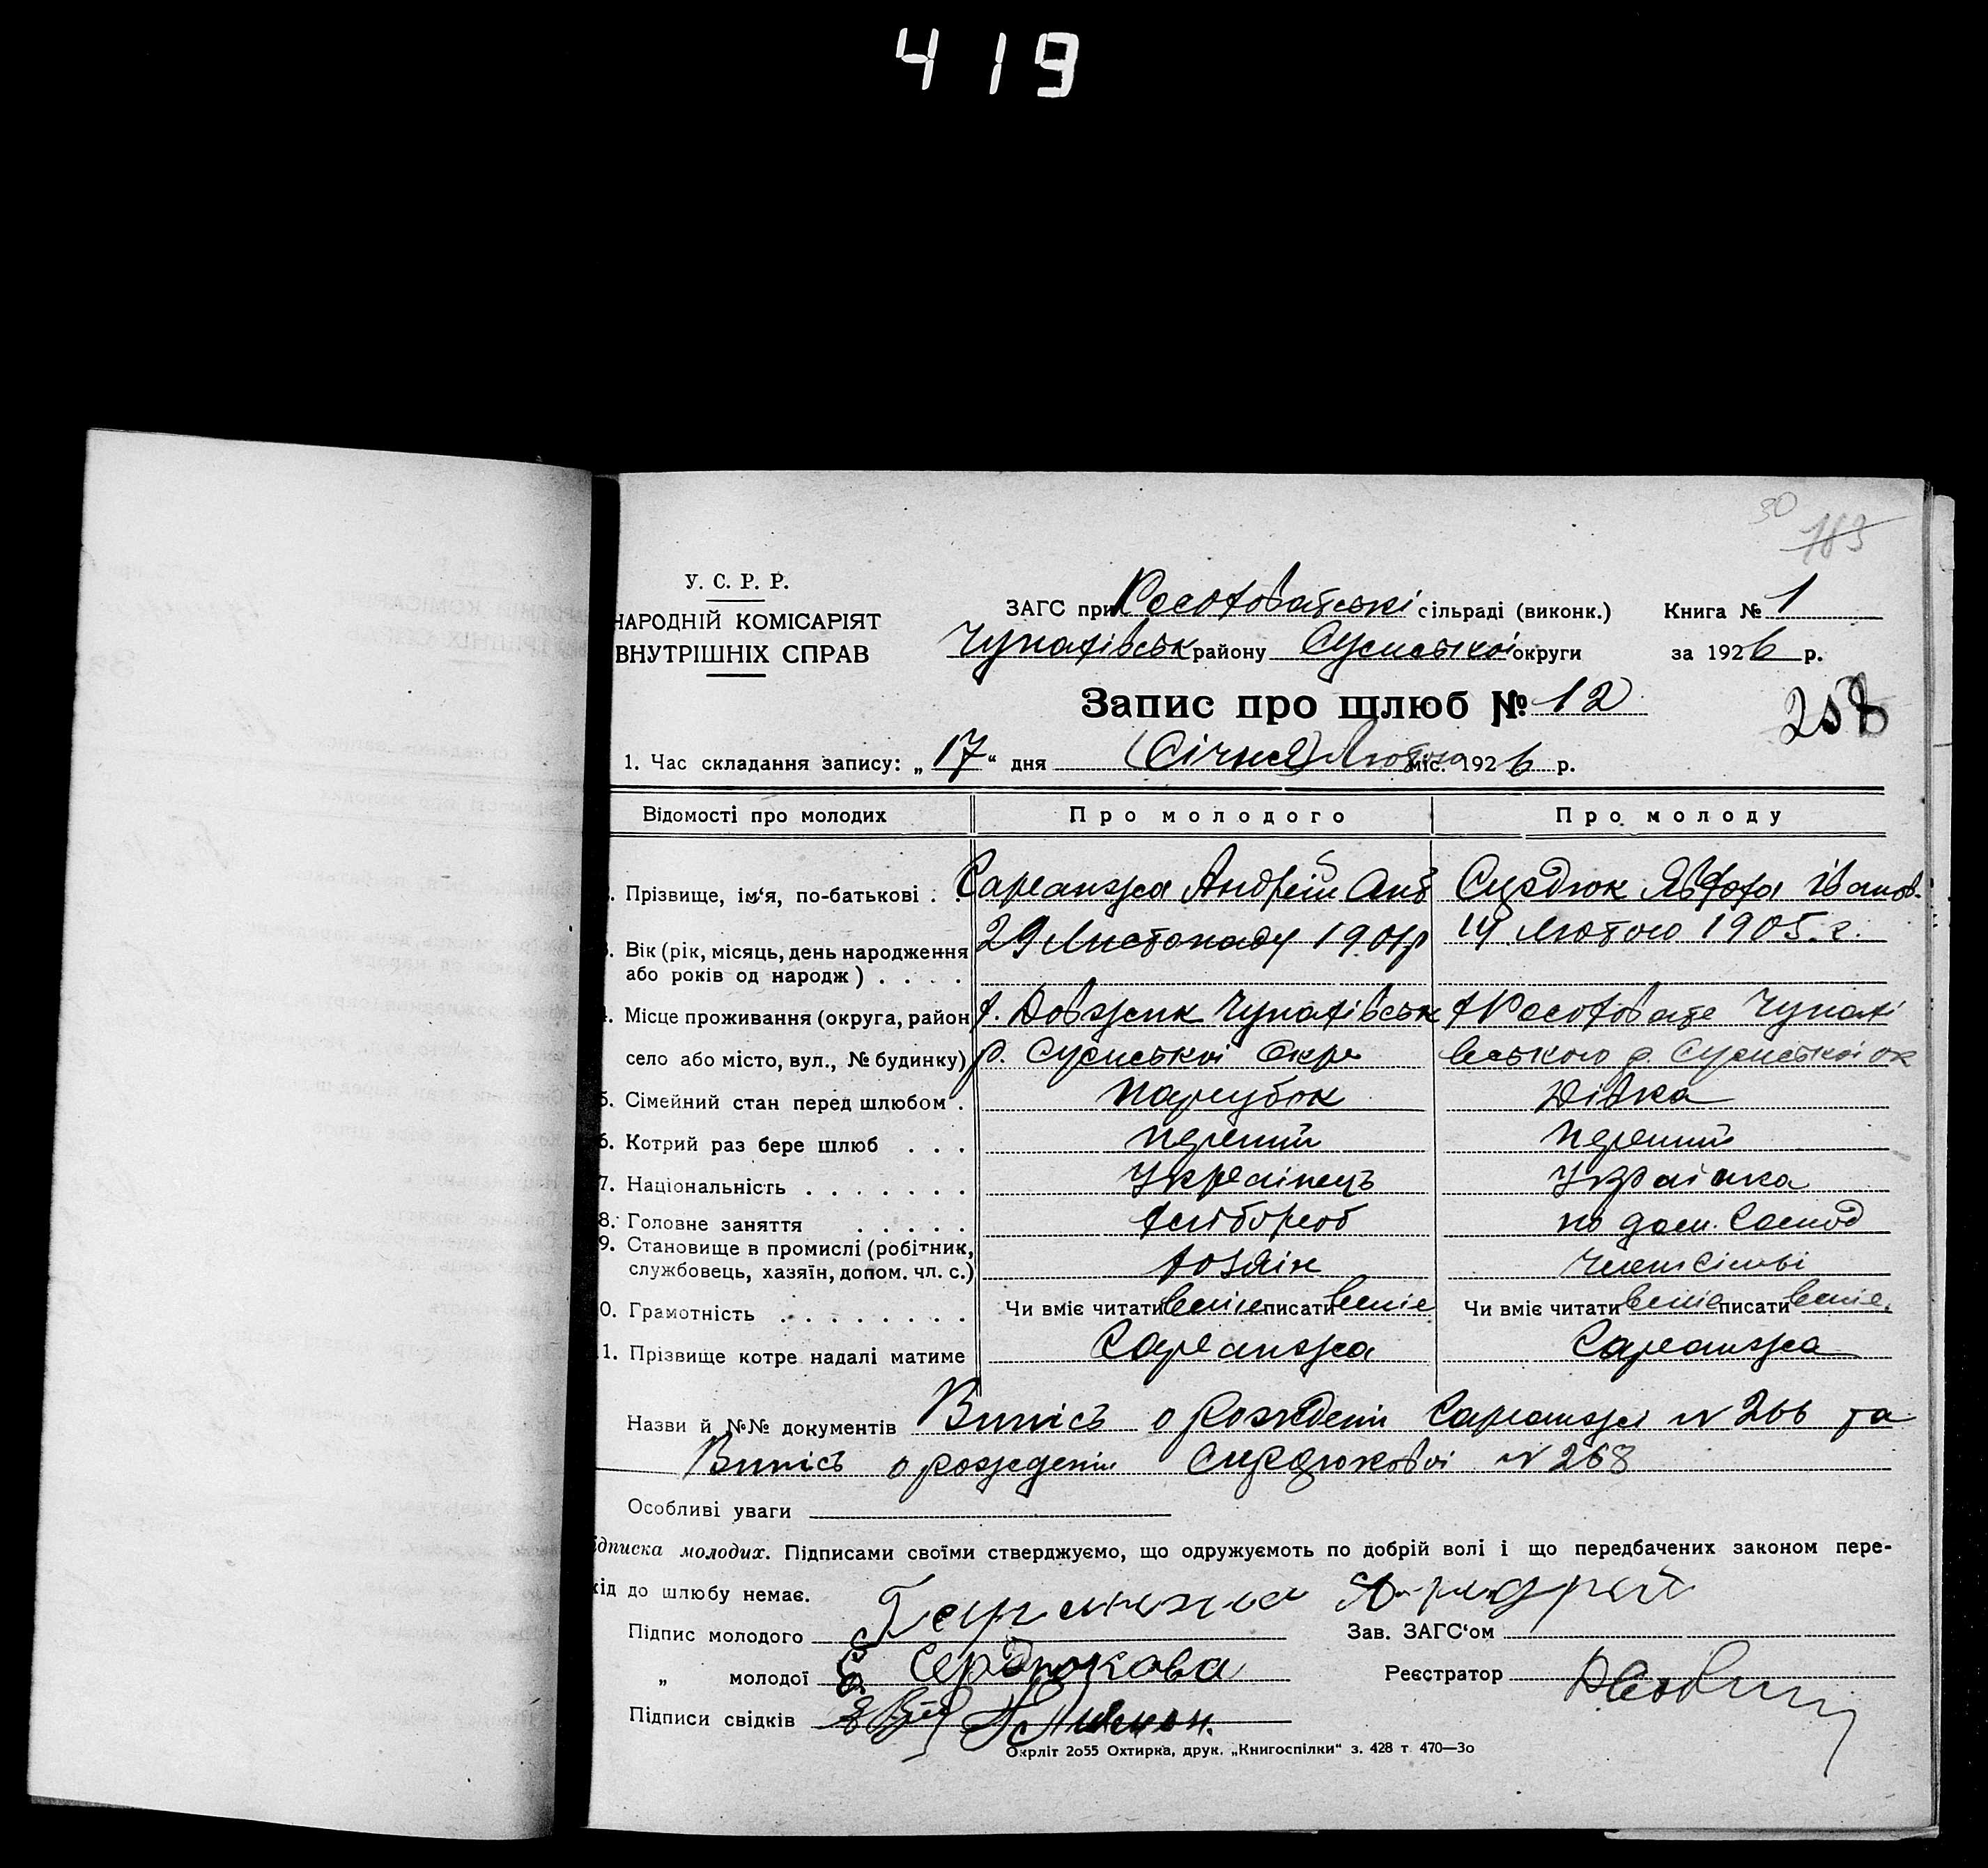 419
30
183
У. С. Р. Р.
НАРОДНІЙ КОМІСАРІЯТ
ВНУТРІШНІХ СПРАВ
ЗАГС при сільраді (виконк.) Книга № 1
Чупахівськ району Сумської округи за 1926 р.
Запис про шлюб № 12
258
1. Час складання запису: „17“ дня (Січня) Лютого міс. 1926 р.
Відомості про молодих Про молодого Про молоду
Прізвище, ім‘я, по-батькові . . Андрій Ант Явдоха Іванов.
3. Вік (рік, місяць, день народження 29 Листопаду 1901 р 14 Лютого 1905. г.
або років од народж) . . . .
4. Місце проживання (округа, район х. Довжик Чупахівськ х Чупахі
село або місто, вул., № будинку) р. Сумської Окр вського р. Сумської ок
5. Сімейний стан перед шлюбом . Парубок Дівка
6. Котрий раз бере шлюб . . . перший перший
7. Національність . . . . . . . Українець Українка
8. Головне заняття . . . . . хлібороб по дом. Господ
9. Становище в промислі (робітник,
службовець, хазяїн, допом. чл. с.) хозяін член сімьі
0. Грамотність . . . . . . . . Чи вміє читати вміє писати вміє Чи вміє читати вміє писати вміє.
11. Прізвище котре надалі матиме
Назви й №№ документів Випісь о рождении № 266 та
Випісь о рождении Сердюковоі № 268
Особливі уваги
ідписка молодих. Підписами своїми стверджуємо, що одружуємоть по добрій волі і що передбачених законом пере-
кід до шлюбу немає.
Підпис молодого Андрей Зав. ЗАГС‘ом
„ молодої Сердюкова Реєстратор
Підписи свідків
Окрліт 2о55 Охтирка, друк. „Книгоспілки“ з. 428 т 470—3о